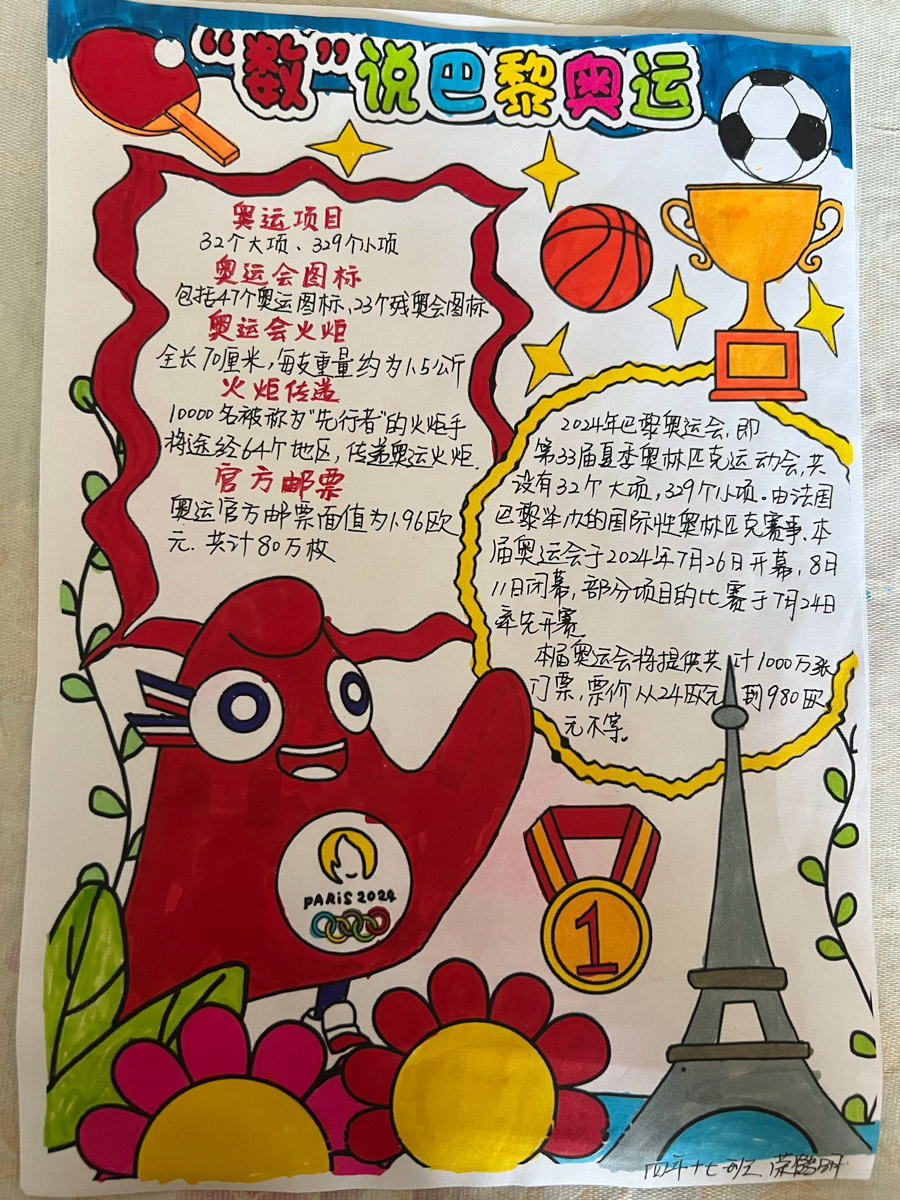 “数”说巴黎奥运
奥运项目
32个大项、329个小项
奥运会图标
包括47个奥运图标、23个残奥会图标
奥运会火炬
全长70厘米，每支重量约为1.5公斤
火炬传递
10000名被称为“先行者”的火炬手
将途经64个地区，传递奥运火炬.
官方邮票
奥运官方邮票面值为1.96欧
元.共计80万枚
2024年巴黎奥运会，即
第33届夏季奥林匹克运动会，共
设有32个大项，329个小项.由法国
巴黎举办的国际性奥林匹克赛事.本
届奥运会于2024年7月26日开幕，8日
11日闭幕，部分项目的比赛于7月24日
率先开赛
本届奥运会将提供共计1000万张
门票，票价从24欧元到980欧
元不等。
PARiS 2024
1
四年十七班